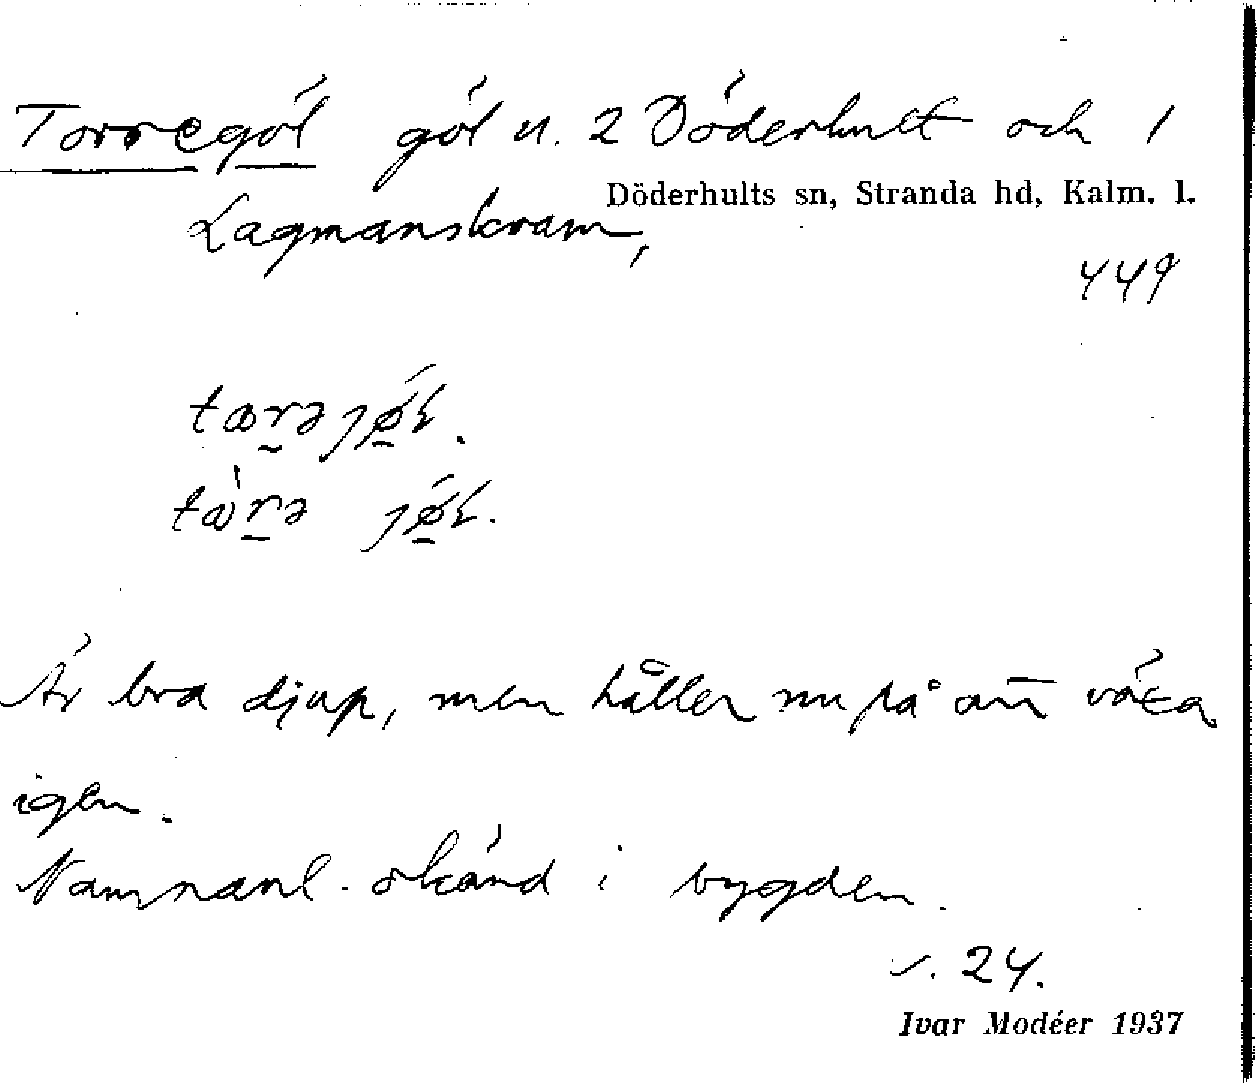 Torregöl göl u. 2 Döderhult och 1
Döderhults sn, Stranda hd, Kalm. l.
Lagmanskvarn,
449
tɷrəȷøɫ.
tɷ̀rə ȷøɫ.
Är bra djup, men håller nu på att växa
igen.
Namnanl. okänd i bygden.
s. 24.
Ivar Modéer 1937